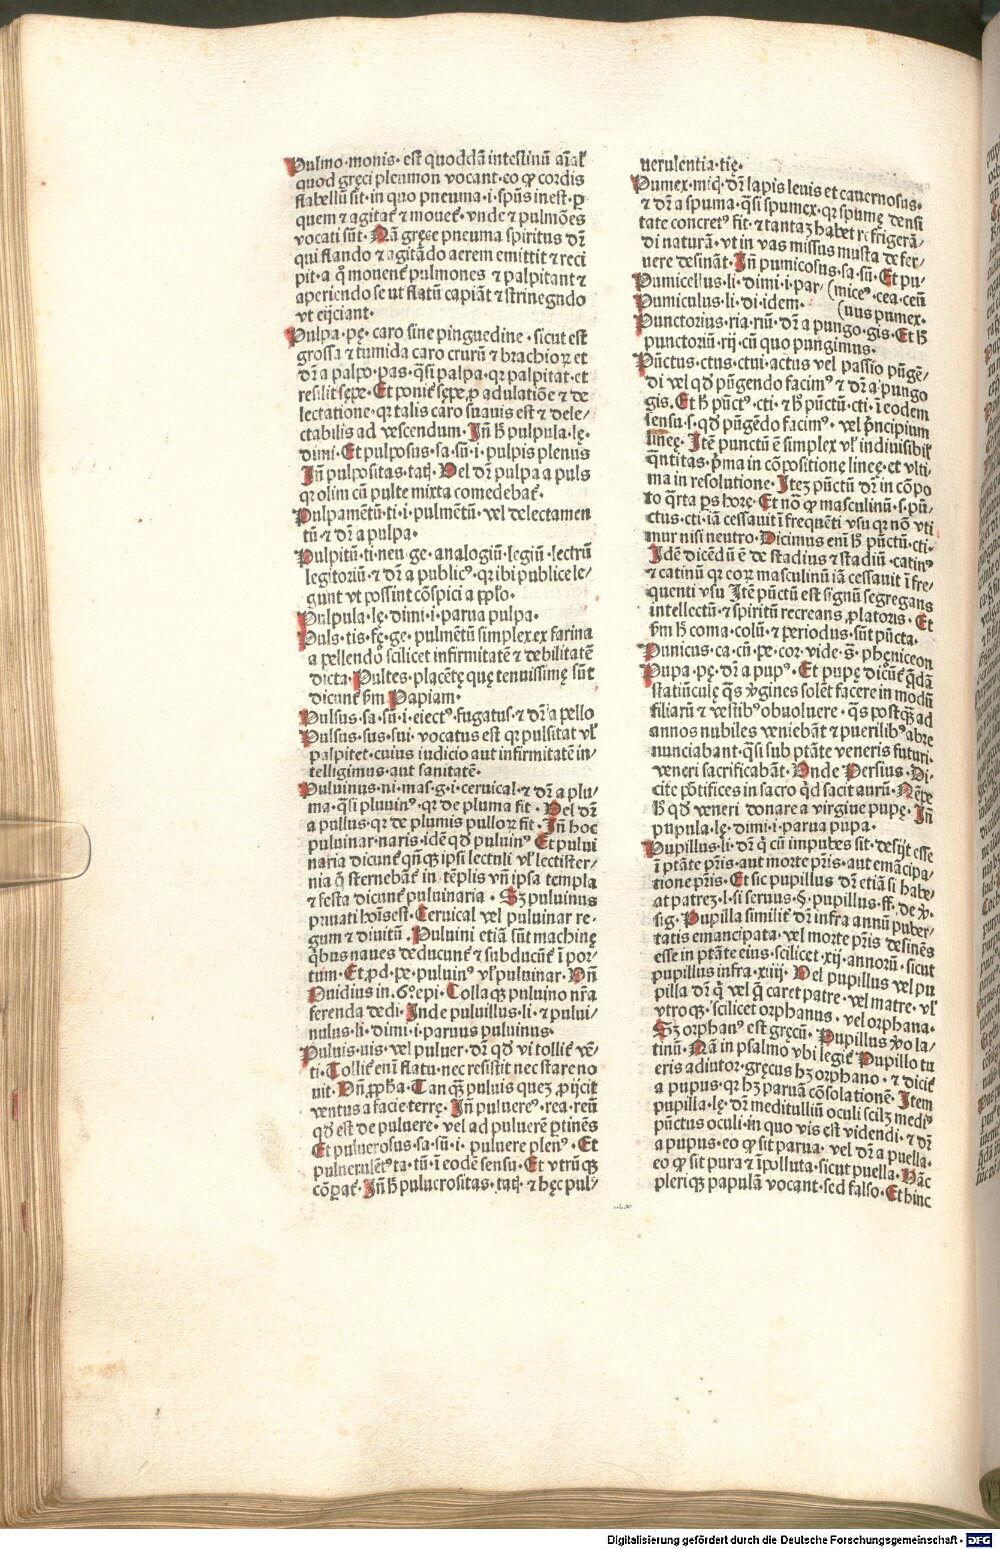 Pulmo·monis· est quoddã intestinũ aĩal̃
quod gręci pleumon vocant·eo ꝙ cordis
flabellũ sit·in quo pneuma·i·spũs inest·ꝑ
quem ⁊ agitat̃ ⁊ mouet̃· vnde ⁊ pulmões
vocati sũt· Nã gręce pneuma spiritus dr̃
qui flando ⁊ agitãdo aerem emittit ⁊ reci
pit·a q̃ mouent̃ pulmones ⁊ palpitant ⁊
aperiendo se ut flatũ capiãt ⁊ strinegndo
vt eijciant·
Pulpa·pę·caro sine pinguedine·sicut est
grossa ⁊ tumida caro crurũ ⁊ brachioꝝ et
dr̃ a palpo·pas·q̃si palpa·qꝛ palpitat·et
resilit sępe· Et ponit̃ sępe ꝓ adulatiõe ⁊ de
lectatione·qꝛ talis caro suauis est ⁊ dele/
ctabilis ad vescendum· Jñ h̃ pulpula·lę·
dimi·Et pulposus·sa·sũ·i·pulpis plenus
Jñ pulpositas·tatꝭ· Vel dr̃ pulpa a puls
qꝛ olim cũ pulte mixta comedebat̃·
Pulpamẽtũ·ti·i·pulmẽtũ·vel delectamen
tũ ⁊ dr̃ a pulpa·
Pulpitũ·ti·neu·ge·analogiũ·legiũ·lectrũ
legitoriũ·⁊ dr̃ a publicꝰ·qꝛ ibi publice le/
gunt vt possint cõspici a ppl̃o·
Pulpula·lę·dimi·i·parua pulpa·
Puls·tis·fę·ge·pulmẽtũ simplex ex farina
a pellendo scilicet infirmitatẽ ⁊ debilitatẽ
dicta·Pultes·placẽtę quę tenuissimę sũt
dicunt̃ ẜm Papiam·
Pulsus·sa·sũ·i·eiectꝰ·fugatus·⁊ dr̃ a pello
Pulsus·sus·sui·vocatus est qꝛ pulsitat vl̃
palpitet·cuius iudicio aut infirmitatẽ in/
telligimus·aut sanitatẽ·
Puluinus·ni·mas·g·i·ceruical·⁊ dr̃ a plu/
ma·q̃si pluuinꝰ·qꝛ de pluma fit·Vel dr̃
a pullus·qꝛ de plumis pulloꝝ fit·Jñ hoc
puluinar·naris·idẽ qd̃ puluinꝰ Et puluī
naria dicunt̃ qñqꝫ ipsi lectuli vl̃ lectister/
nia q̃ sternebãt̃ in tẽplis vñ ipsa templa
⁊ festa dicunt̃ puluinaria· Sꝫ puluinus
priuati hoĩs est·Ceruical vel puluinar re·
gum ⁊ diuitũ·Puluini etiã sũt machinę
q̃bus naues deducunt̃ ⁊ subducunt̃ ĩ por/
tum·Et ꝓd·pe·puluinꝰ vl̃ puluinar·Vñ
Ouidius in·6º epi·Collaqꝫ puluino nr̃a
ferenda dedi·Jnde puluillus·li·⁊ pului/
nulus·li·dimi·i·paruus puluinus·
Puluis·uis·vel puluer·dr̃ qd̃ vi tollit̃ vẽ/
ti·Tollit̃ eni ̃ flatu·nec resistit nec stare no
uit·Vñ ꝓpha·Tanqꝫ puluis quez ꝓijcit
ventus a facie terrę·Jñ pulueꝛꝰ·rea·reũ
qd̃ est de puluere·vel ad puluerẽ ꝑtinẽs
Et puluerosus·sa·sũ·i·puluere plenꝰ·Et
puluerulẽtꝰ ta·tũ·i eodẽ sensu·Et vtrũqꝫ
cõꝑat̃·Jñ h̃ puluerositas·tatꝭ·⁊ hęc pul/
uerulentia·tię·
Pumex·micꝭ·dr̃ lapis leuis et cauernosus·
⁊ dr̃ a spuma·q̃si spumex·qꝛ spumę densi
tate concretꝰ fit·⁊ tantaꝫ habet refrigerã/
di naturã·vt in vas missus musta de fer/
uere desinãt·Jñ pumicosus·sa·sũ·Et pu/
Pumicellus·li·dimi·i·par/ (miceꝰ·cea·ceũ
Pumiculus·li·di·idem· (uus pumex·
Punctorius·ria·riũ·dr̃ a pungo·gis·Et h̃
punctoriũ·rij·cũ quo pungimus·
Pũctus·ctus·ctui·actus vel passio pũgẽ/
di vel qd̃ pũgendo facimꝰ ⁊ dr̃ a pungo
gis·Et h̃ pũctꝰ·cti·⁊ h̃ pũctũ·cti·ĩ eodem
sensu·s·qd̃ pũgẽdo facimꝰ· vel prĩncipium
lineę· Jtẽ punctũ ẽ simplex vl̃ indiuisibil̃
q̃ntitas·prĩma in cõpositionę lineę·et vlti/
ma in resolutione·Jteꝫ pũctũ dr̃ in cõpo
to q̃rta ꝑs horę·Et nõ ꝙ masculinũ·s·pũ/
ctus·cti·iã cessauit ĩ frequẽti vsu qꝛ nõ vti
mur nisi neutro·Dicimus eni ̃ h̃ pũctũ·cti·
Jdẽ dicẽdũ ẽ de stadius ⁊ stadiũ·catinꝰ
⁊ catinũ qꝛ eoꝝ masculinũ iã cessauit ĩ fre/
quenti vsu Jtẽ pũctũ est signũ segregans
intellectũ·⁊ spiritũ recreans ꝓlatoris·Et
ẜm h̃ coma·colũ·⁊ periodus·sũt pũcta·
Punicus·ca·cũ·pe·cor·vide·s̃·phęniceon
Pupa·pę·dr̃ a pupꝰ·Et pupę dicũt̃ q̃dã
statiũculę q̃s ꝟgines solẽt facere in modũ
filiarũ ⁊ vestibꝰ obuoluere·q̃s postq̃ꝫ ad
annos nubiles veniebãt ⁊ puerilibꝰ abre
nunciabant·q̃si sub ptãte veneris futuri·
veneri sacrificabãt·Vnde Persius·Di/
cite põtifices in sacro qd̃ facit aurũ·Nẽpe
h̃ qd̃ veneri donare a virgine pupę·Jñ
pupula·lę·dimi·i·parua pupa·
Pupillus·li·dr̃ q̃ cũ impubes sit·desijt esse
ĩ ptãte pr̃is·aut morte pr̃is·aut emãcipa/
tione pr̃is·Et sic pupillus dr̃ etiã si habe/
at patreꝫ·l·si seruus·§·pupillus·ff·de ꝟ·
sig·Pupilla similit̃ dr̃ infra annũ puber/
tatis emancipata·vel morte pr̃is desinẽs
esse in ptãte eius·scilicet·xij·annorũ·sicut
pupillus infra·xiiij·Vel pupillus vel pu
pilla dr̃ q̃ vel q̃ caret patre·vel matre·vl̃
vtroqꝫ·scilicet orphanus·vel orphana·
Sꝫ orphanꝰ est gręcũ·Pupillus ꝟo la/
tinũ·Nã in psalmo vbi legit̃ Pupillo tu
eris adiutor·gręcus hꝫ orphano·⁊ dicit̃
a pupus·qꝛ hꝫ paruã cõsolationẽ·Jtem
pupilla·lę·dr̃ meditulliũ oculi scilꝫ mediꝰ
pũctus oculi·in quo vis est videndi·⁊ dr̃
a pupus·eo ꝙ sit parua·vel dr̃ a puella·
eo ꝙ sit pura ⁊ ĩpolluta·sicut puella·Hãc
pleriqꝫ papulã vocant·sed falso·Et hinc
Digitalisierung gefördert durch die Deutsche Forschungsgemeinschaft - DFG